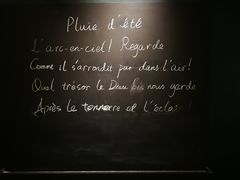 Pluie d'été
L'arc-en-ciel! Regarde
Comme il s'arrondit pur dans l'air!
Quel trésor le Dieu bon nous garde
Après le tonnerre et l'éclair!